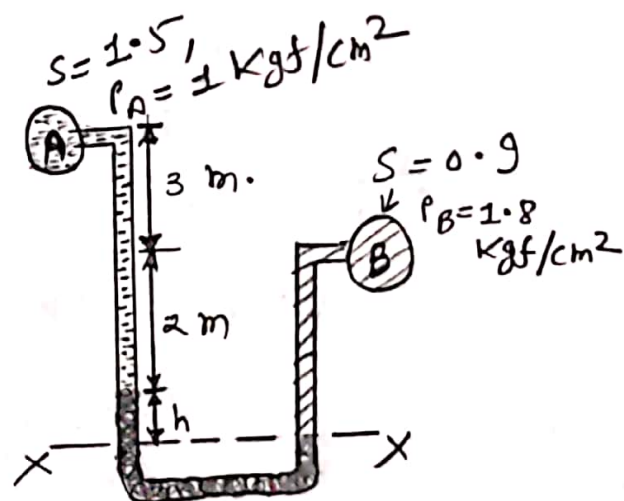 S = 1.5,
PA = 1 Kgf/cm²
A
3 m.
S = 0.9
PB = 1.8
Kgf/cm²
B
2 m
h
X X